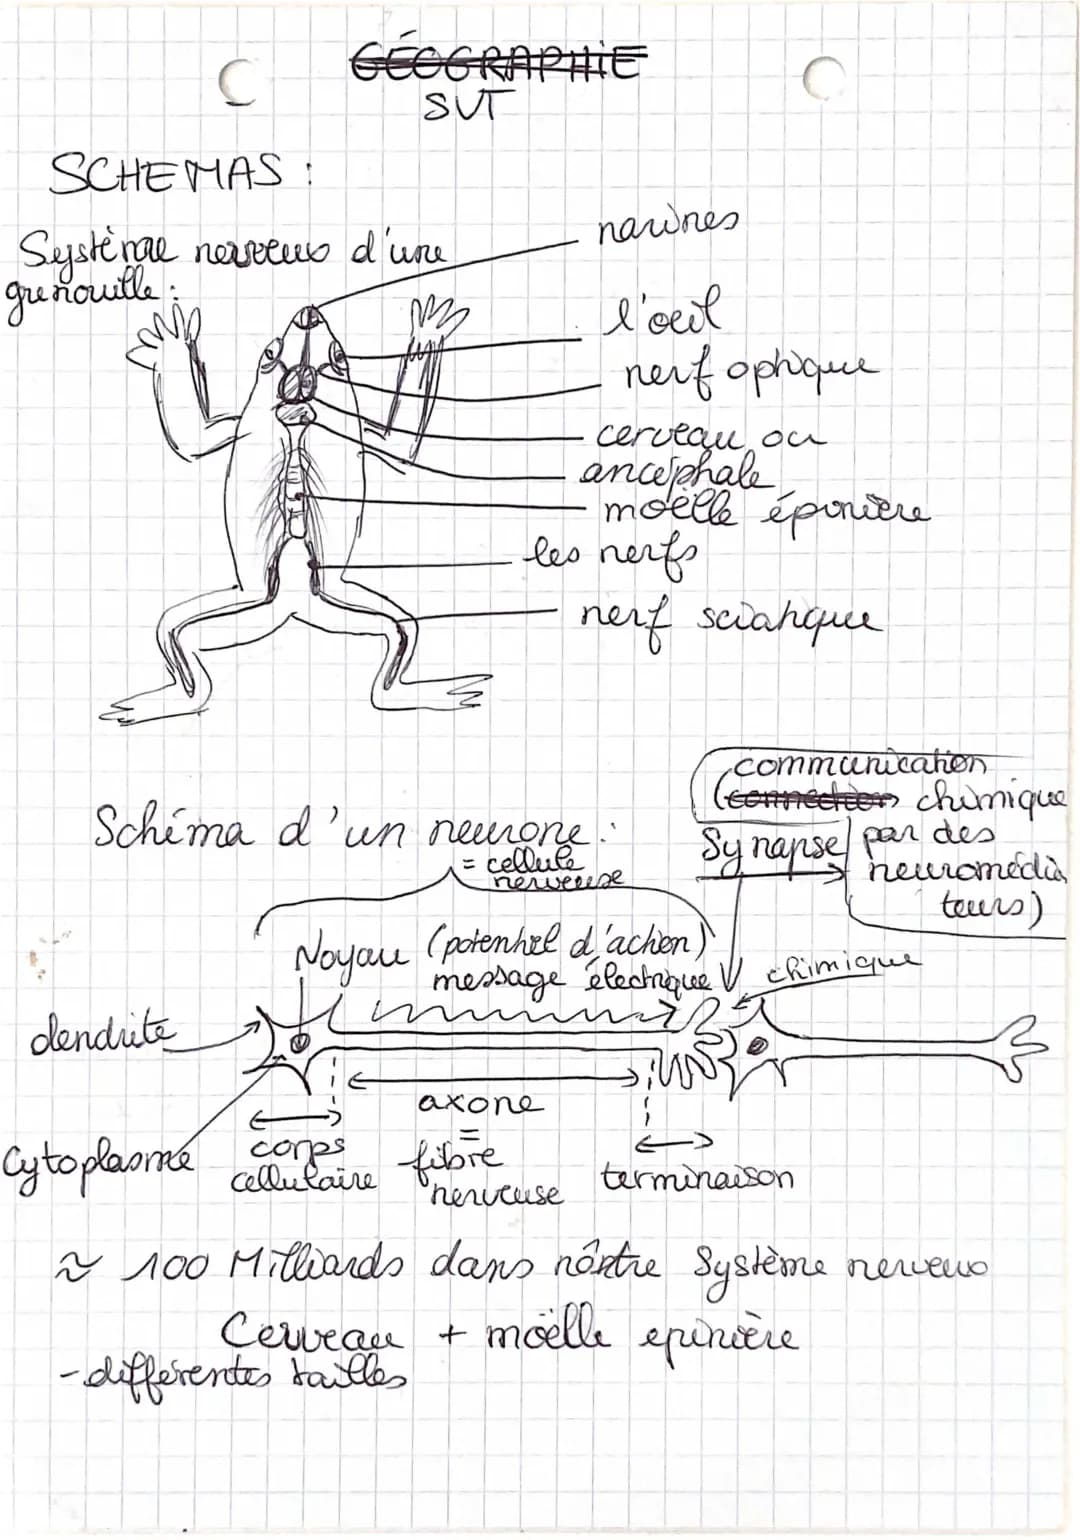 GÉOGRAPHIE
SVT
SCHEMAS :
Système nerveux d'une
grenouille :
narines
l'oeil
nerf ophique
cerveau ou
ancéphale
moëlle épinière
les nerfs
nerf sciatique
communication
(connection chimique
Synapse par des
neuromédia
teurs)
Schéma d'un neurone :
= cellule
nerveuse
Noyau (potentiel d'action)
message électrique
chimique
dendrite
axone
=
fibre
nerveuse
Cytoplasme
corps
cellulaire
terminaison
≈ 100 Milliards dans nôtre Système nerveux
Cerveau + moëlle epinière
- différentes tailles